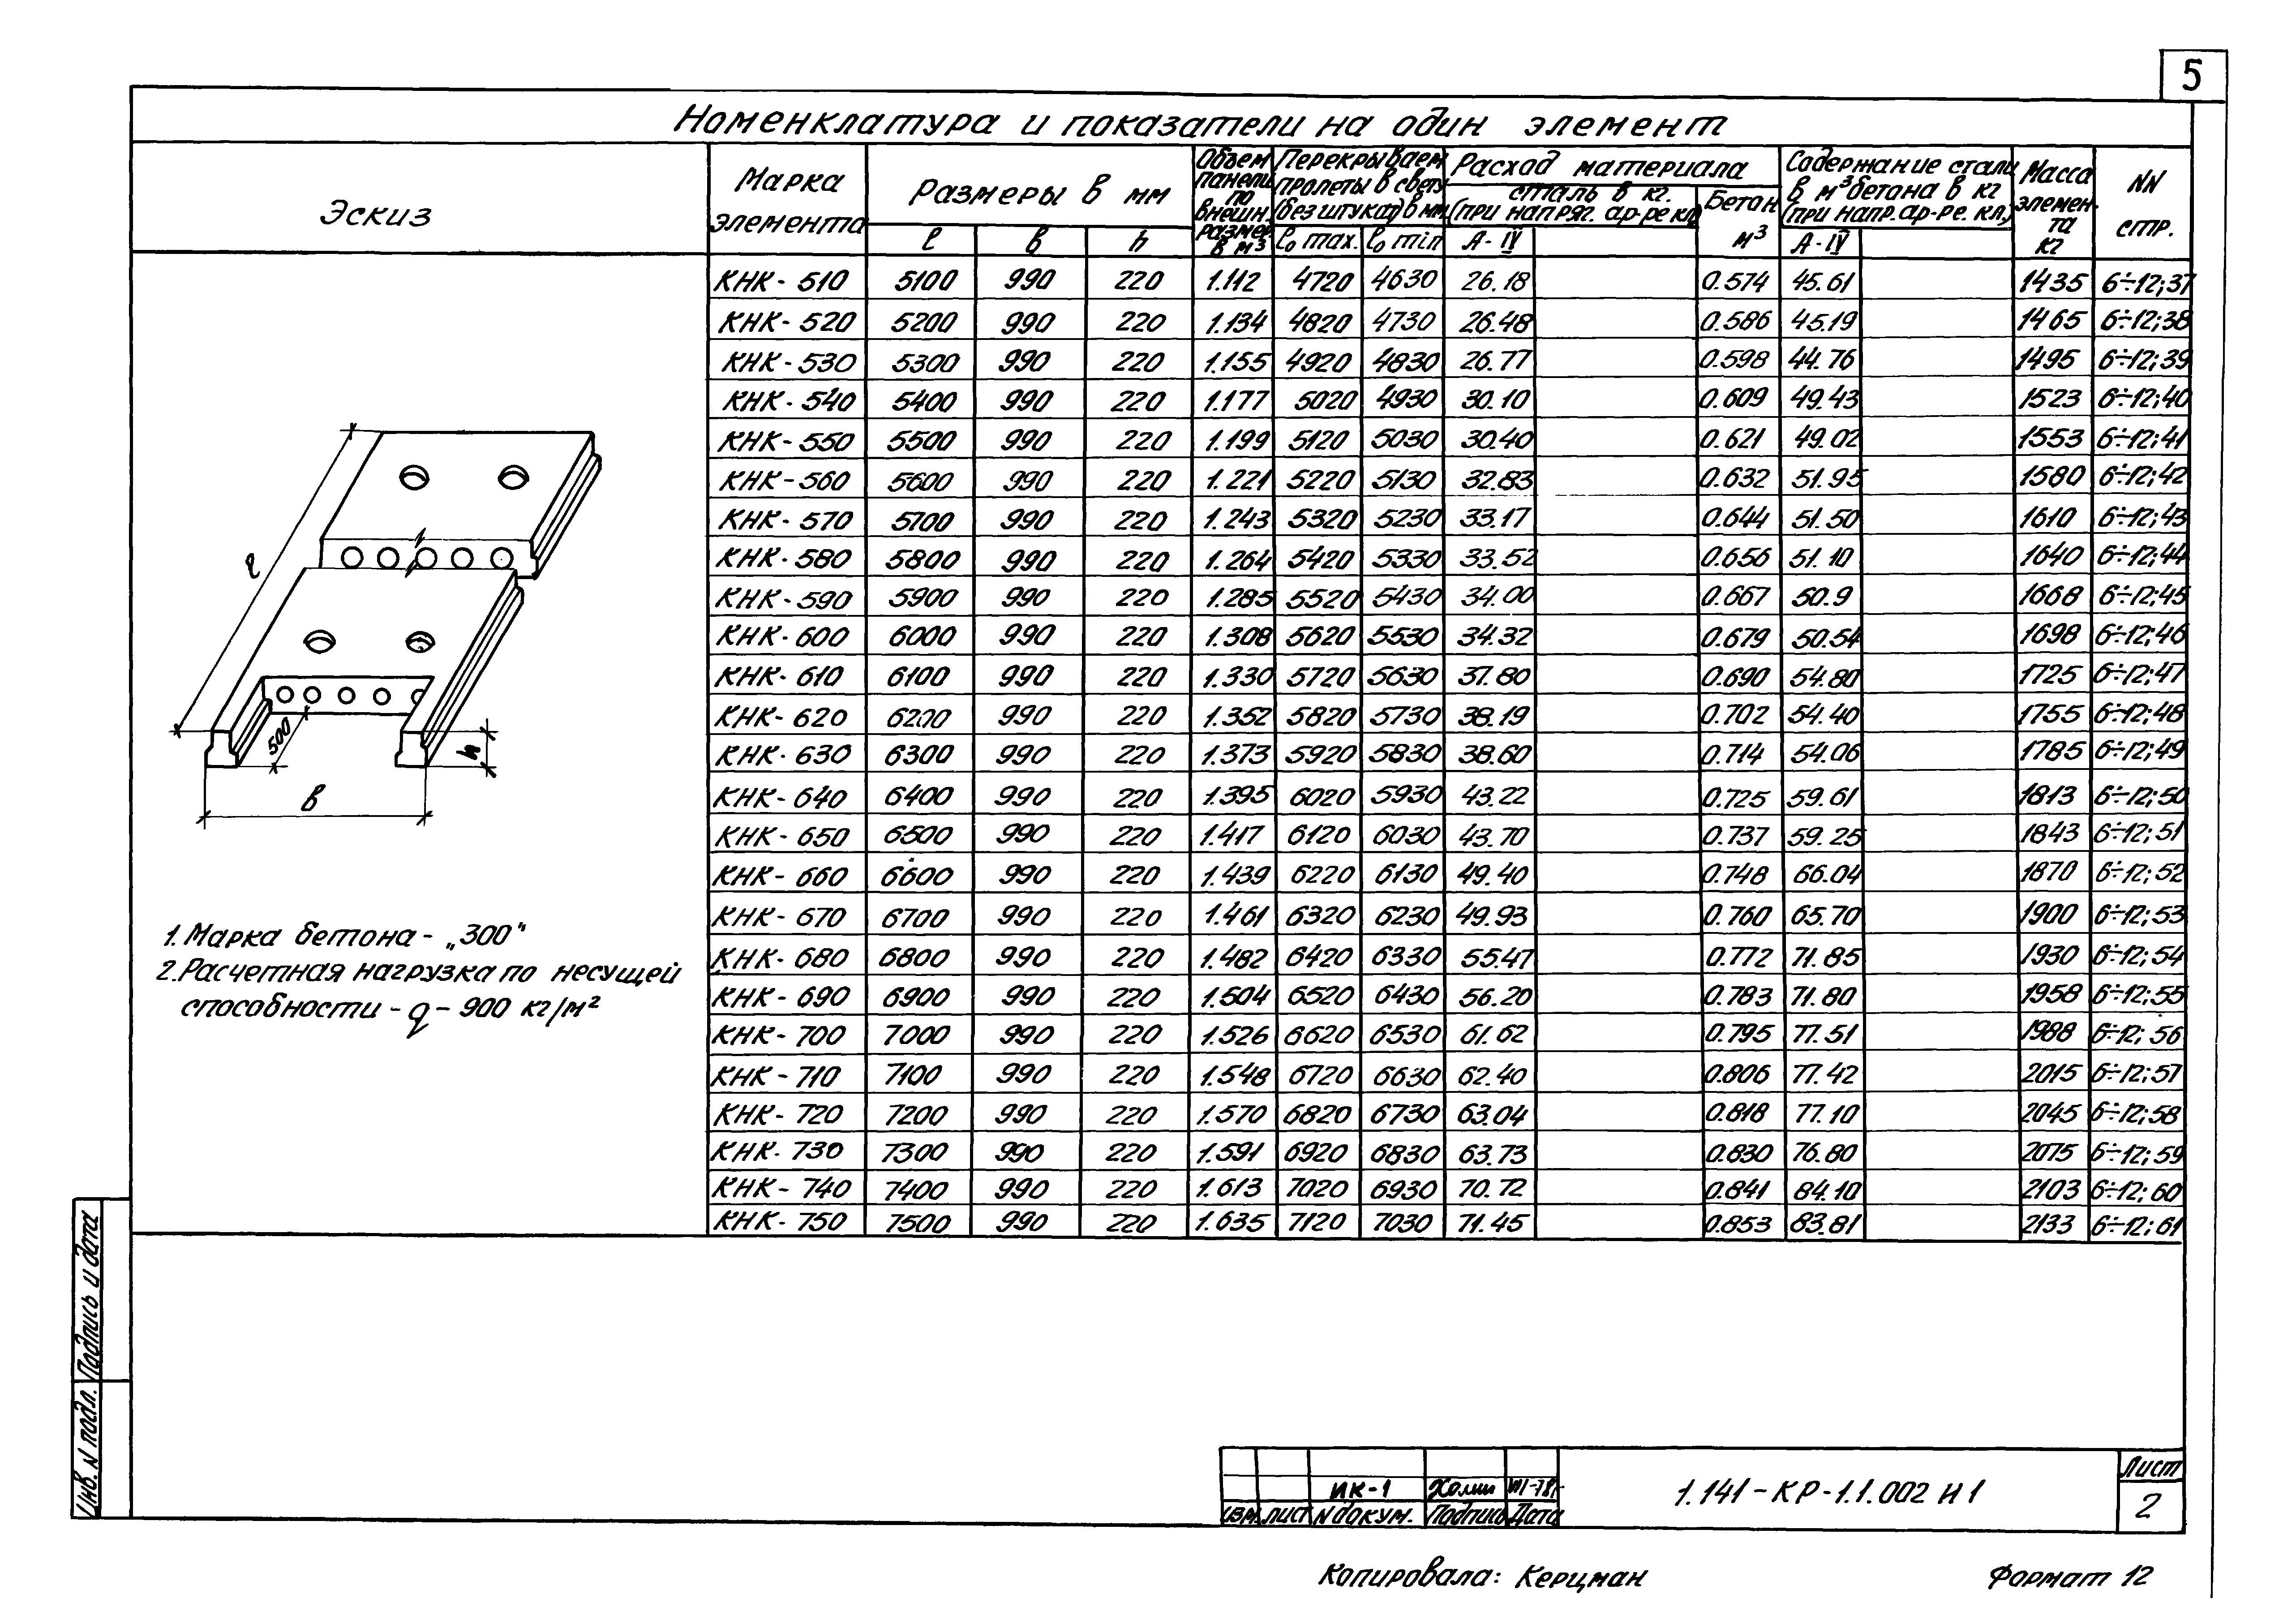 5
Номенклатура и показатели на один элемент
Эскиз
Марка элемента
Размеры в мм
l b h
Объем панели по внешн. размер. в м³
Перекрываем пролеты в свету (без штукат.) в мм
l₀ max. l₀ min
Расход материала
сталь в кг. (при напряг. ар-ре кл.)
А-IV
Бетон м³
Содержание стали в м³ бетона в кг (при напр. ар-ре. кл.)
А-IV
Масса элемента кг
NN стр.
КНК-510 5100 990 220 1.112 4720 4630 26.18 0.574 45.61 1435 6÷12;37
КНК-520 5200 990 220 1.134 4820 4730 26.48 0.586 45.19 1465 6÷12;38
КНК-530 5300 990 220 1.155 4920 4830 26.77 0.598 44.76 1495 6÷12;39
КНК-540 5400 990 220 1.177 5020 4930 30.10 0.609 49.43 1523 6÷12;40
КНК-550 5500 990 220 1.199 5120 5030 30.40 0.621 49.02 1553 6÷12;41
КНК-560 5600 990 220 1.221 5220 5130 32.83 0.632 51.95 1580 6÷12;42
КНК-570 5700 990 220 1.243 5320 5230 33.17 0.644 51.50 1610 6÷12;43
КНК-580 5800 990 220 1.264 5420 5330 33.52 0.656 51.10 1640 6÷12;44
КНК-590 5900 990 220 1.285 5520 5430 34.00 0.667 50.9 1668 6÷12;45
КНК-600 6000 990 220 1.308 5620 5530 34.32 0.679 50.54 1698 6÷12;46
КНК-610 6100 990 220 1.330 5720 5630 37.80 0.690 54.80 1725 6÷12;47
КНК-620 6200 990 220 1.352 5820 5730 38.19 0.702 54.40 1755 6÷12;48
КНК-630 6300 990 220 1.373 5920 5830 38.60 0.714 54.06 1785 6÷12;49
КНК-640 6400 990 220 1.395 6020 5930 43.22 0.725 59.61 1813 6÷12;50
КНК-650 6500 990 220 1.417 6120 6030 43.70 0.737 59.25 1843 6÷12;51
КНК-660 6600 990 220 1.439 6220 6130 49.40 0.748 66.04 1870 6÷12;52
КНК-670 6700 990 220 1.461 6320 6230 49.93 0.760 65.70 1900 6÷12;53
КНК-680 6800 990 220 1.482 6420 6330 55.47 0.772 71.85 1930 6÷12;54
КНК-690 6900 990 220 1.504 6520 6430 56.20 0.783 71.80 1958 6÷12;55
КНК-700 7000 990 220 1.526 6620 6530 61.62 0.795 77.51 1988 6÷12;56
КНК-710 7100 990 220 1.548 6720 6630 62.40 0.806 77.42 2015 6÷12;57
КНК-720 7200 990 220 1.570 6820 6730 63.04 0.818 77.10 2045 6÷12;58
КНК-730 7300 990 220 1.591 6920 6830 63.73 0.830 76.80 2075 6÷12;59
КНК-740 7400 990 220 1.613 7020 6930 70.72 0.841 84.10 2103 6÷12;60
КНК-750 7500 990 220 1.635 7120 7030 71.45 0.853 83.81 2133 6÷12;61
l
500
h
b
1. Марка бетона - „300"
2. Расчетная нагрузка по несущей
способности - q - 900 кг/м²
Подпись и дата
Инв. N подл.
ИК-1
Изм. лист N докум. Подпись Дата
1.141-КР-1.1.002 И1
Лист
2
Копировала: Керцман
Формат 12